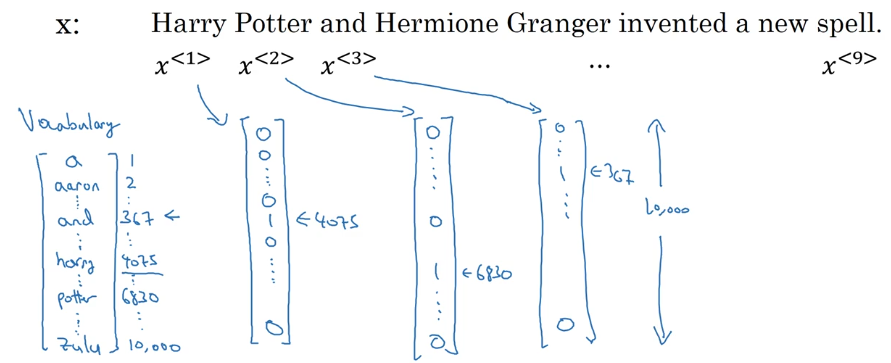 x: Harry Potter and Hermione Granger invented a new spell.
x<1> x<2> x<3> ... x<9>
Vocabulary
a 1
aaron 2
⋮ ⋮
and 367 ←
⋮ ⋮
harry 4075
⋮ ⋮
potter 6830
⋮ ⋮
zulu 10,000
0
0
⋮
0
1 ←4075
0
⋮
0
0
⋮
0
1 ←6830
⋮
0
0
⋮
1 ←367
⋮
0
10,000